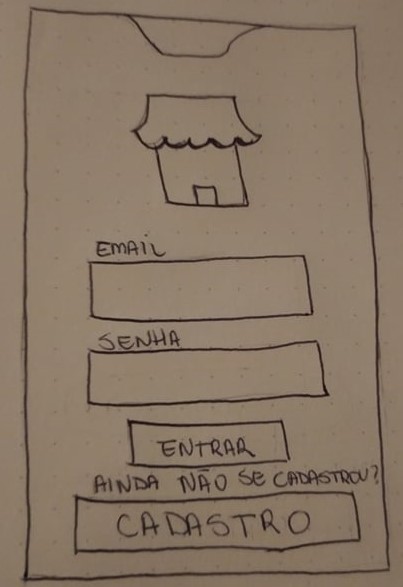 EMAIL
SENHA
ENTRAR
AINDA NÃO SE CADASTROU?
CADASTRO